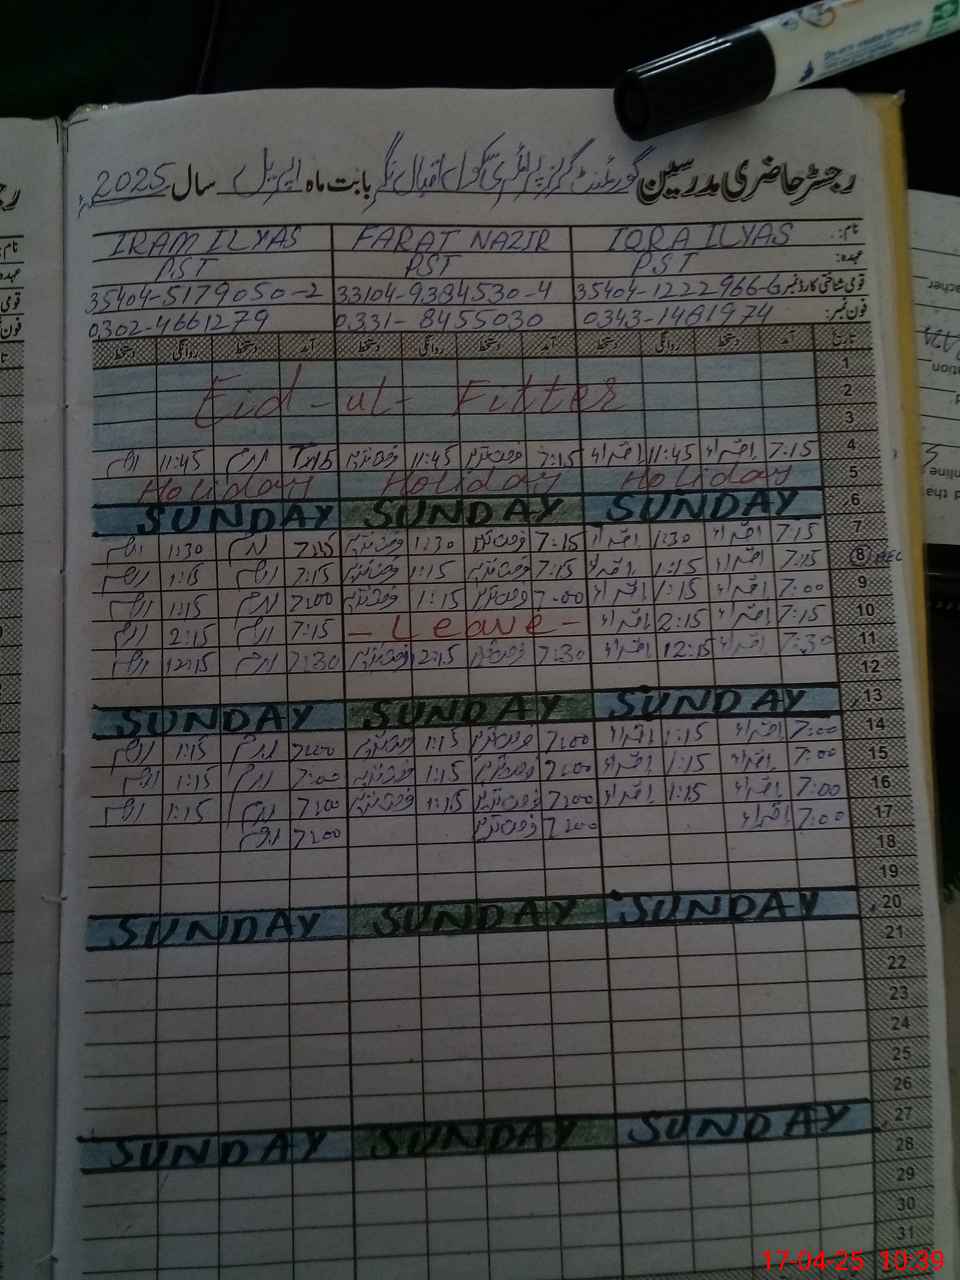 رجسٹر حاضری مدرسین گورنمنٹ گرلز پرائمری سکول اقبال نگر بابت ماہ اپریل سال 2025
نام: IQRA ILYAS FARAT NAZIR IRAM ILYAS
عہدہ: PST PST PST
قومی شناختی کارڈ نمبر 35404-1222966-6 33104-9384530-4 35404-5179050-2
فون نمبر: 0343-1481974 0331-8455030 0302-4661279
تاریخ آمد دستخط روانگی دستخط آمد دستخط روانگی دستخط آمد دستخط روانگی دستخط
1
2 Eid-ul-Fitter
3
4 7:15 اقراء 11:45 اقراء 7:15 11:45 7:15 ارم 11:45 ارم
5 Holiday Holiday Holiday
6 SUNDAY SUNDAY SUNDAY
7 7:15 اقراء 1:30 اقراء 7:15 1:30 7:15 ارم 1:30 ارم
8 7:15 اقراء 1:15 اقراء 7:15 1:15 7:15 ارم 1:15 ارم
9 7:00 اقراء 1:15 اقراء 7:00 1:15 7:00 ارم 1:15 ارم
10 7:15 اقراء 2:15 اقراء - Leave - 7:15 ارم 2:15 ارم
11 7:30 اقراء 12:15 اقراء 7:30 12:15 7:30 ارم 12:15 ارم
12
13 SUNDAY SUNDAY SUNDAY
14 7:00 اقراء 1:15 اقراء 7:00 1:15 7:00 ارم 1:15 ارم
15 7:00 اقراء 1:15 اقراء 7:00 1:15 7:00 ارم 1:15 ارم
16 7:00 اقراء 1:15 اقراء 7:00 1:15 7:00 ارم 1:15 ارم
17 7:00 اقراء 7:00 7:00 ارم
18
19
20 SUNDAY SUNDAY SUNDAY
21
22
23
24
25
26
27 SUNDAY SUNDAY SUNDAY
28
29
30
31
17-04-25 10:39